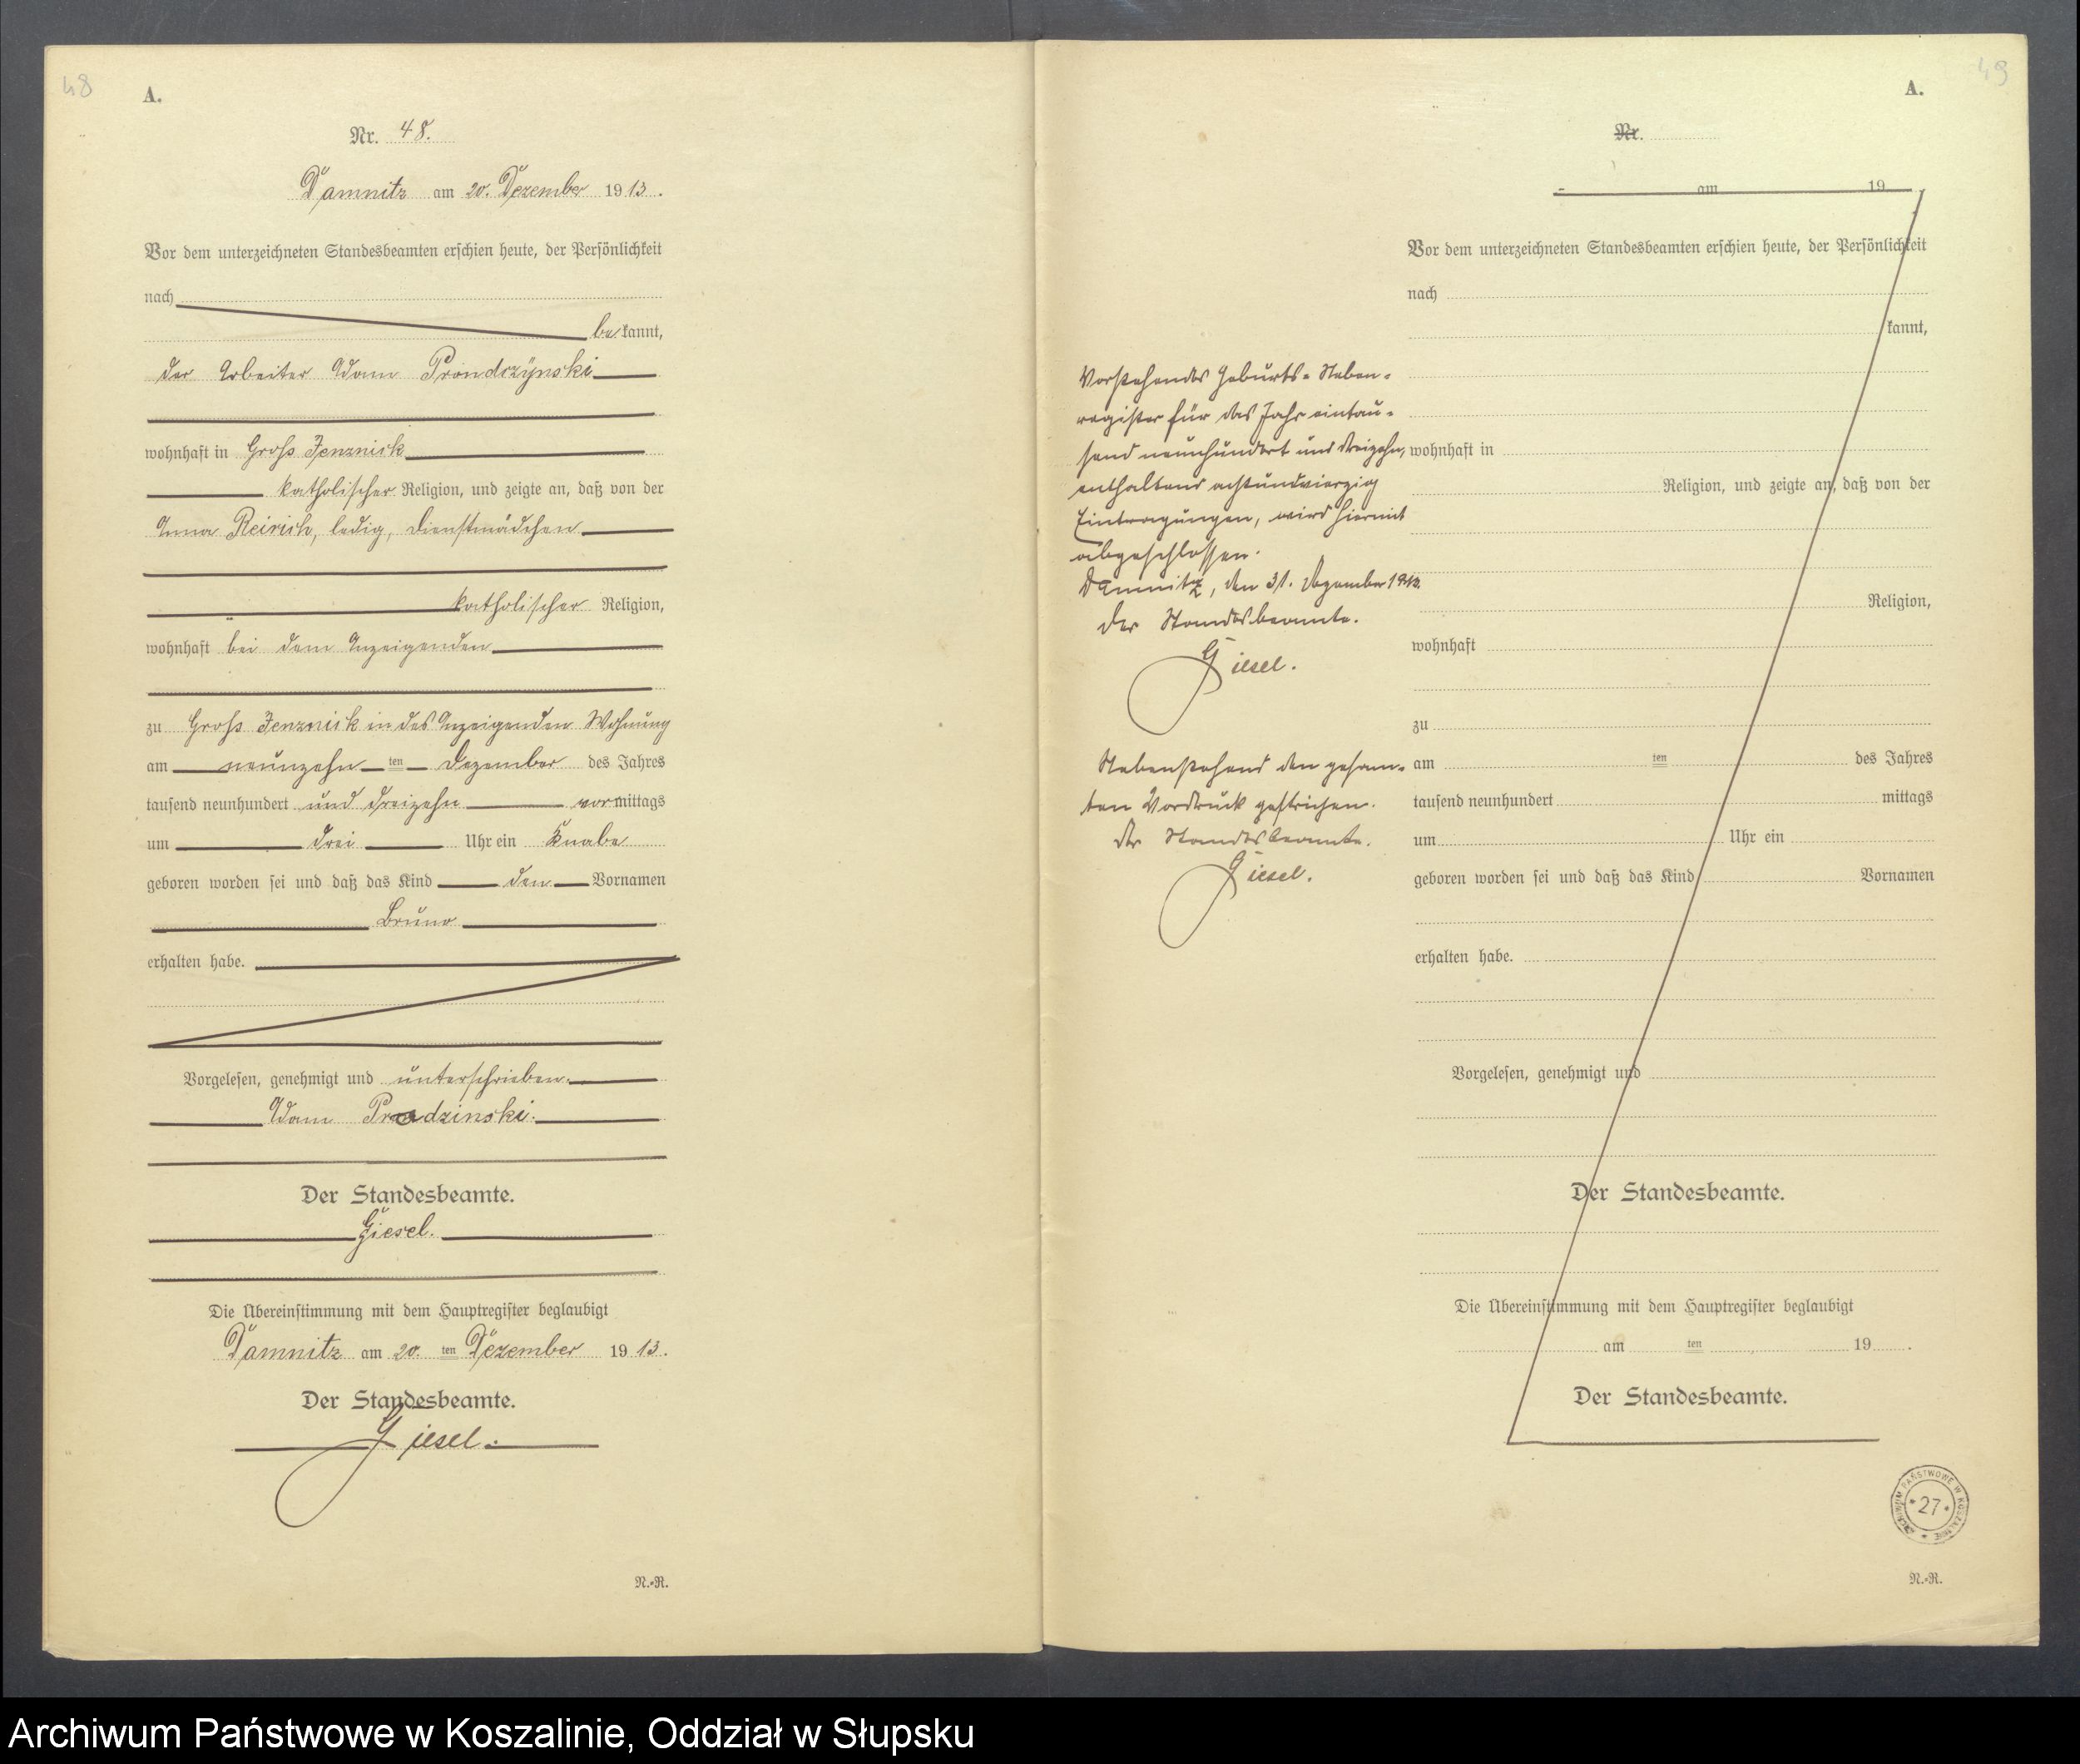 48
A.
Nr. 48.
Damnitz am 20. Dezember 1913.
Vor dem unterzeichneten Standesbeamten erschien heute, der Persönlichkeit
nach
bekannt,
der Arbeiter Adam Prondczÿnski
wohnhaft in Groß Jenznick
katholischer Religion, und zeigte an, daß von der
Anna, ledig, Dienstmädchen
katholischer Religion,
wohnhaft bei dem Anzeigenden
zu Groß Jenznick in des Anzeigenden Wohnung
am neunzehn ten Dezember des Jahres
tausend neunhundert und dreizehn vormittags
um drei Uhr ein Knabe
geboren worden sei und daß das Kind den Vornamen
Bruno
erhalten habe.
Vorgelesen, genehmigt und unterschrieben.
Adam Pradzinski.
Der Standesbeamte.
Giesel.
Die Übereinstimmung mit dem Hauptregister beglaubigt
Damnitz am 20. ten Dezember 1913.
Der Standesbeamte.
Giesel.
N.-R.
49
A.
Nr.
am 19
Vor dem unterzeichneten Standesbeamten erschien heute, der Persönlichkeit
nach
kannt,
Vorstehendes Geburts-Neben-
register für das Jahr eintau-
send neunhundert und dreizehn,
enthaltend achtundvierzig
Eintragungen, wird hiermit
abgeschlossen.
Damnitz, den 31. Dezember 1913.
Der Standesbeamte.
Giesel.
Nebenstehend den gesam-
ten Vordruck gestrichen.
Der Standesbeamte.
Giesel.
wohnhaft in
Religion, und zeigte an, daß von der
Religion,
wohnhaft
zu
am ten des Jahres
tausend neunhundert mittags
um Uhr ein
geboren worden sei und daß das Kind Vornamen
erhalten habe.
Vorgelesen, genehmigt und
Der Standesbeamte.
Die Übereinstimmung mit dem Hauptregister beglaubigt
am ten 19 .
Der Standesbeamte.
ARCHIWUM PAŃSTWOWE W KOSZALINIE
* 27 *
N.-R.
Archiwum Państwowe w Koszalinie, Oddział w Słupsku